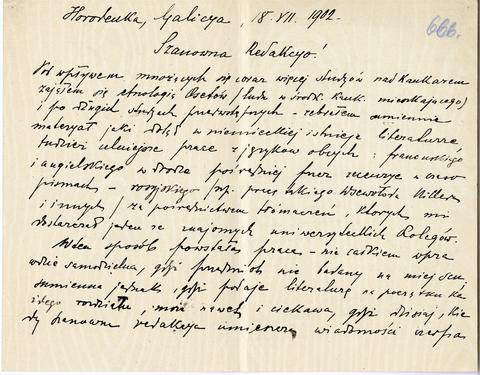 Horodenka, Galicya, 18. VII. 1902.
666.
Szanowna Redakcyo!
Pod wpływem mnożących się coraz więcej studyów nad Kaukazem
zająłem się etnologią Osetów (ludu w środk. Kauk. mieszkającego)
i po długich studyach przedwstępnych – zebrałem sumiennie
materyał jaki dotąd w niemieckiej istnieje literaturze,
tudzież celniejsze prace z języków obcych: francuskiego
i angielskiego w drodze pośredniej przez recenzye w czaso
pismach – rosyjskiego np. prace takiego Wsewołoda Millera
i innych / za pośrednictwem tłómaczeń, których mi
dostarczał jeden ze znajomych uniwersyteckich Kolegów.
W ten sposób powstała praca – nie całkiem wpra
wdzie samodzielna, gdyż przedmiot nie badany na miejscu
sumienna jednak, gdyż podaje literaturę na początku ka
żdego rozdziału, może nawet i ciekawa, gdyż dzisiaj, kie
dy Szanowna redakcya umieszcza wiadomości